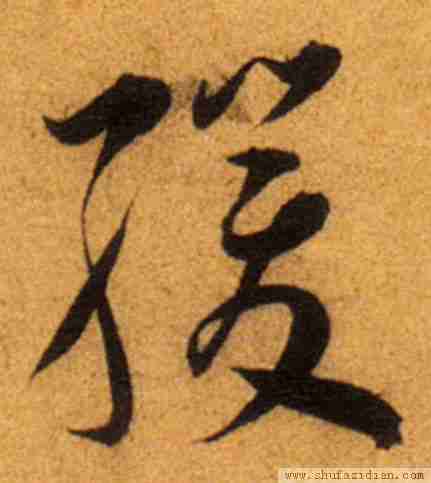 緩
www.shufazidian.com